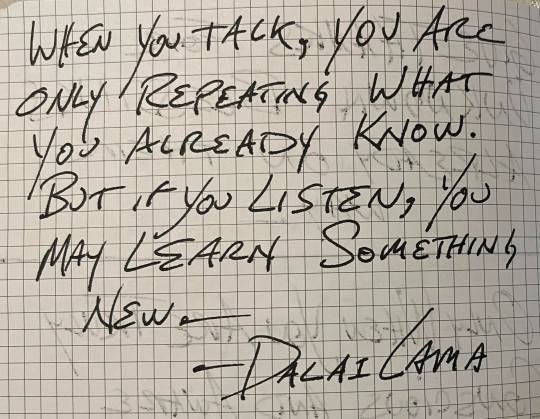 WHEN YOU TALK, YOU ARE
ONLY REPEATING WHAT
YOU ALREADY KNOW.
BUT IF YOU LISTEN, YOU
MAY LEARN SOMETHING
NEW.—
— DALAI LAMA